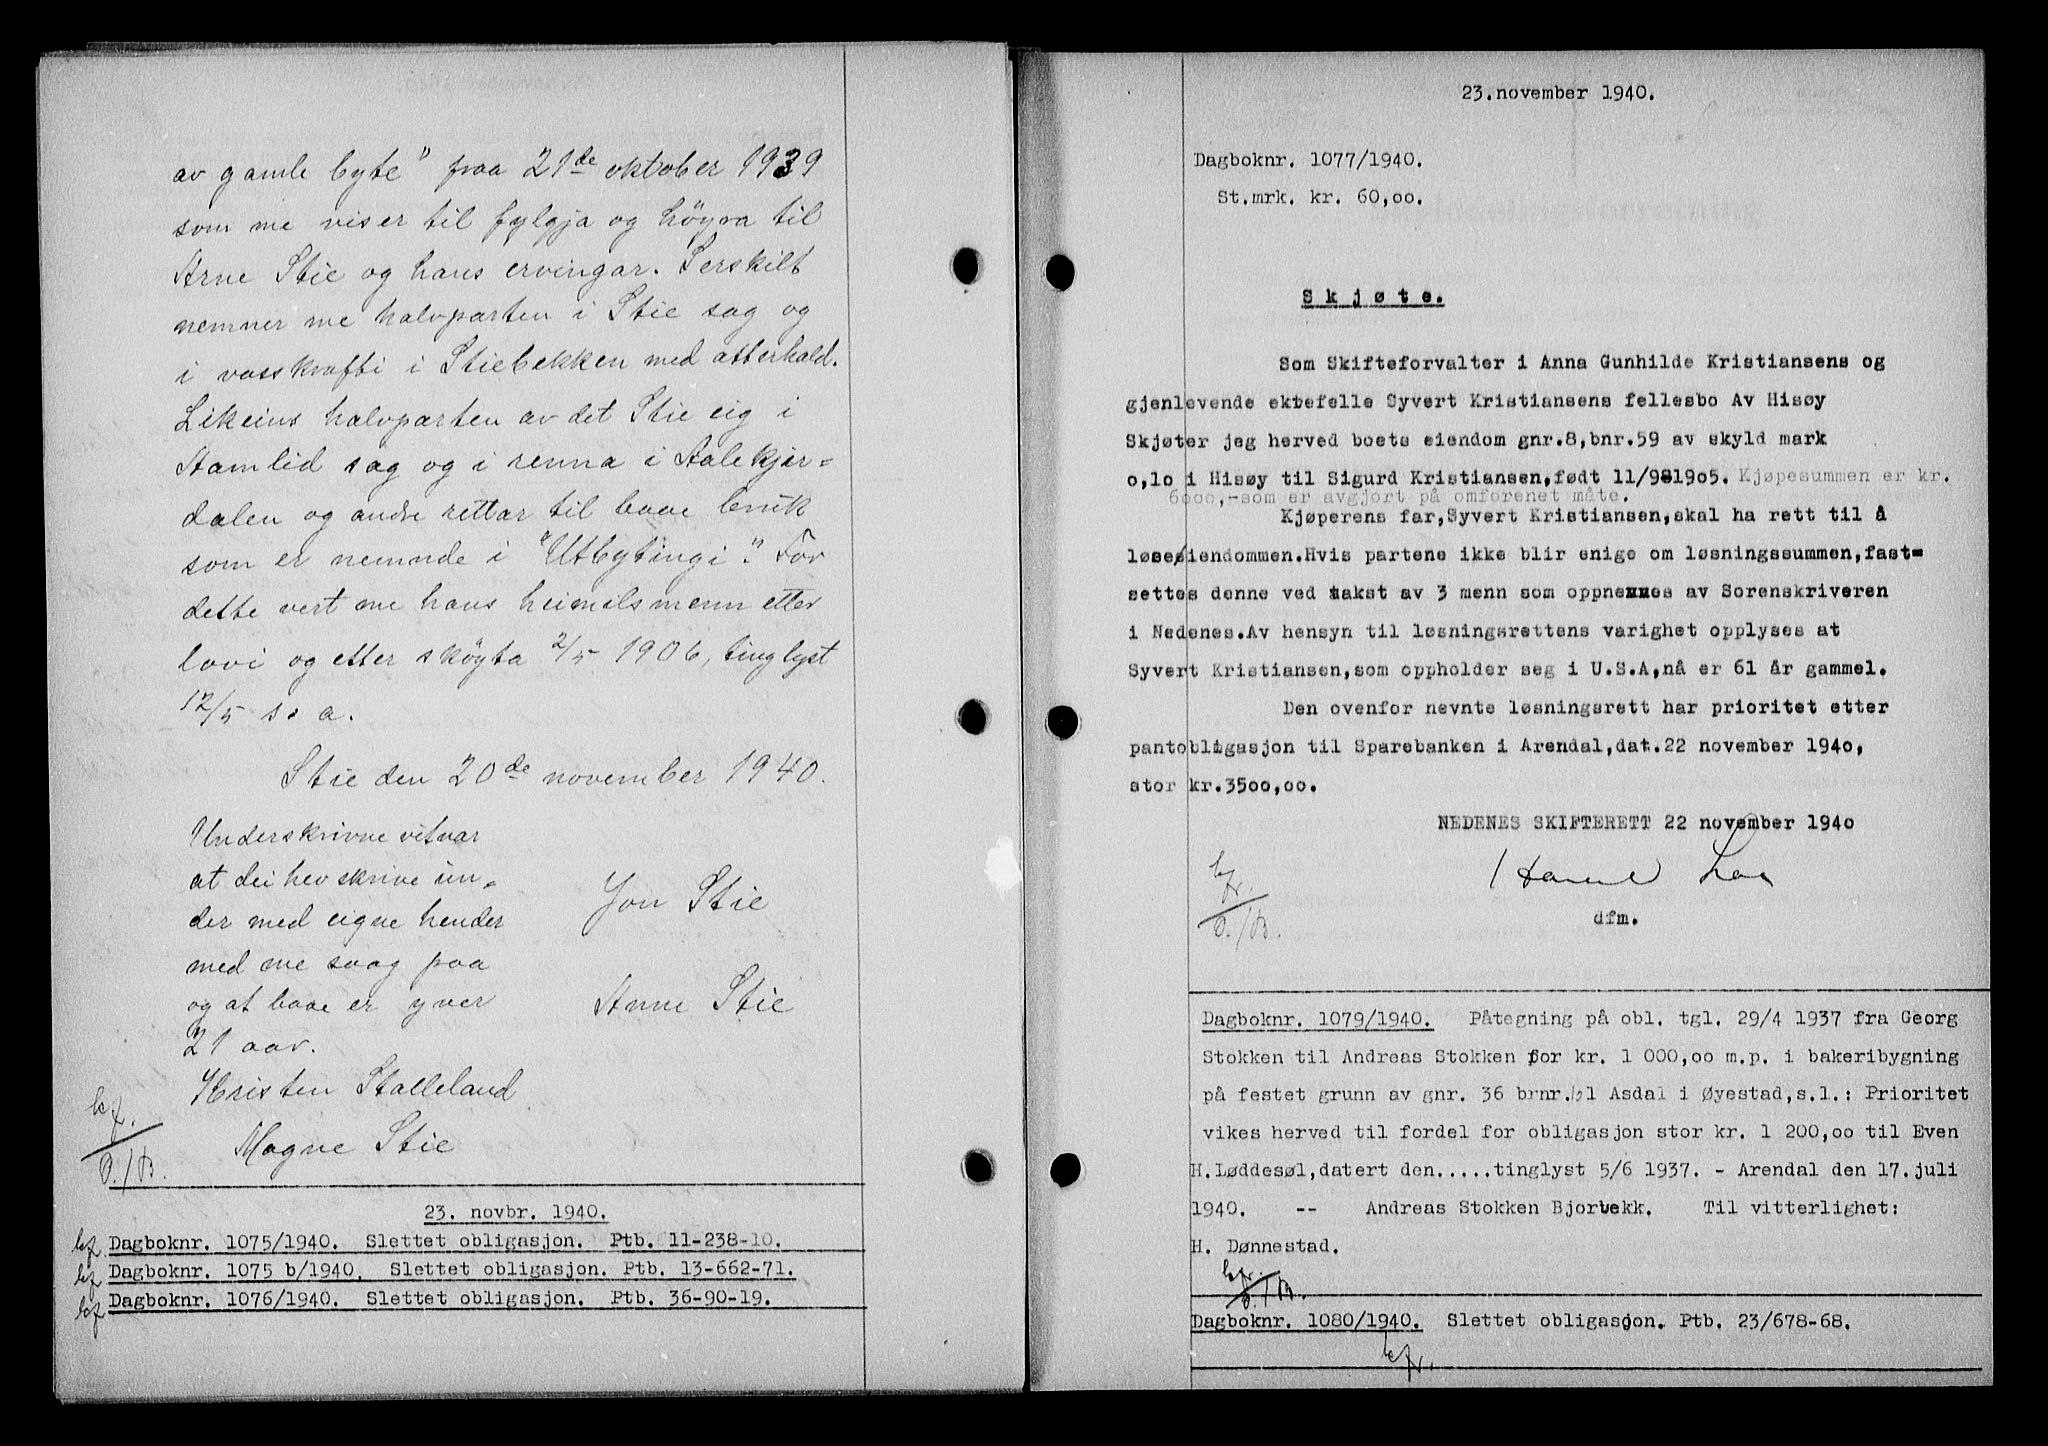 av gamle byte" paa 21de oktober 1939
som me viser til fylgja og höyra til
Arne Stie og hans ervingar. Serskilt
nemner me halvparten i Stie sag og
i vasskrafti i Stiebekken med atterhald.
Likeins halvparten av det Stie eig i
Hamlid sag og i renna i Aalekjær=
dalen og andre rettar til baae bruk
som er nemnde i "Utbytingi". For
dette vert me hans heimilsmenn etter
lovi og etter sköyta 2/5 1906, tinglyst
12/5 s. a.
Stie den 20de november 1940.
Underskrivne vitnar
at dei hev skrive un=
der med eigne hender
med me saag paa
og at baae er yver
21 aar.
Jon Stie
Anne Stie
Kristen Stalleland
Magne Stie
23. novbr. 1940.
Dagboknr. 1075/1940. Slettet obligasjon. Ptb. 11-238-10.
Dagboknr. 1075 b/1940. Slettet obligasjon. Ptb. 13-662-71.
Dagboknr. 1076/1940. Slettet obligasjon. Ptb. 36-90-19.
23.november 1940.
Dagboknr. 1077/1940.
St.mrk. kr. 60,oo.
Skjøte.
Som Skifteforvalter i Anna Gunhilde Kristiansens og
gjenlevende ektefelle Syvert Kristiansens fellesbo Av Hisøy
Skjøter jeg herved boets eiendom gnr.8,bnr.59 av skyld mark
o,lo i Hisøy til Sigurd Kristiansen,født 11/981905. Kjøpesummen er kr.
6ooo,-som er avgjort på omforenet måte.
Kjøperens far,Syvert Kristiansen,skal ha rett til å
løse eiendommen.Hvis partene ikke blir enige om løsningssummen,fast-
settes denne ved takst av 3 menn som oppnevnes av Sorenskriveren
i Nedenes.Av hensyn til løsningsrettens varighet opplyses at
Syvert Kristiansen,som oppholder seg i U.S.A,nå er 61 år gammel.
Den ovenfor nevnte løsningsrett har prioritet etter
pantobligasjon til Sparebanken i Arendal,dat.22 november 1940,
stor kr.3500,oo.
NEDENES SKIFTERETT 22 november 1940
dfm.
Dagboknr. 1079/1940. Påtegning på obl. tgl. 29/4 1937 fra Georg
Stokken til Andreas Stokken for kr. 1 000,oo m.p. i bakeribygning
på festet grunn av gnr. 36 brnr. 1 Asdal i Øyestad,s.l.: Prioritet
vikes herved til fordel for obligasjon stor kr. 1 200,oo til Even
H.Løddesøl,datert den.....tinglyst 5/6 1937. - Arendal den 17.juli
1940. -- Andreas Stokken Bjorbekk. Til vitterlighet:
H. Dønnestad.
Dagboknr. 1080/1940. Slettet obligasjon. Ptb. 23/678-68.